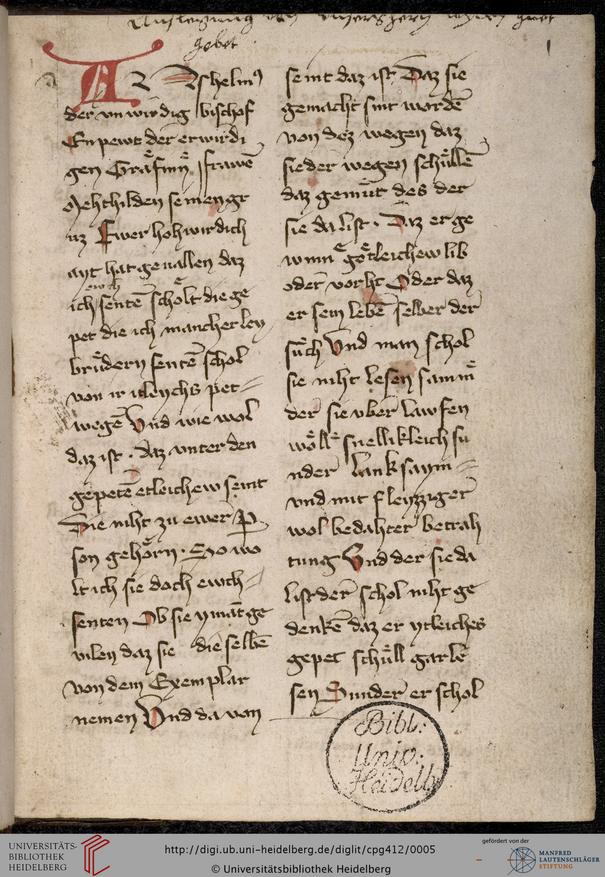 gebet
1
Anshelm᾽
der vnwirdig bischof
Enpewt der erwirdi
gen Gräfinn frawē
Mehthilden seinen gr
uz Ewer hohwirdich
ayt hat geuallen daz
ewch
ich senten scholt die ge
pet die ich mancherley
brüdern sentē schol
von ir ytleichs pet=
wegē Vnd wie wol
daz ist · daz vnter den
gepetē etleichew seint
Die niht zu ewer ꝑ
son gehörn · So wo
lt ich sie doch ewch=
senten Ob sie ymāt ge
uilen daz sie die selbē
von dem Exemplar
nemen Vnd da von
seint daz ist Daz sie
gemacht sint wordē
von dez wegen daz
sie der wegen schüllē
daz gemüt des der
sie da list · Daz er ge
winn götleichew lib
oder vorht Oder daz
er sein lebē selber der
such Vnd man schol
sie niht lesen samm
der sie vber lawffen
wöll snellikleich su
nder lanksaym=
vnd mit fleyzziger
wol bedahter betrah
tung Vnd der sie da
list der schol niht ge
denkē daz er ytleiches
gepet schüll gar le
sen Sunder er schol
Bibl:
Univ:
Heidelb.
UNIVERSITÄTS-
BIBLIOTHEK
HEIDELBERG
http://digi.ub.uni-heidelberg.de/diglit/cpg412/0005
© Universitätsbibliothek Heidelberg
gefördert von der
MANFRED
LAUTENSCHLÄGER
STIFTUNG